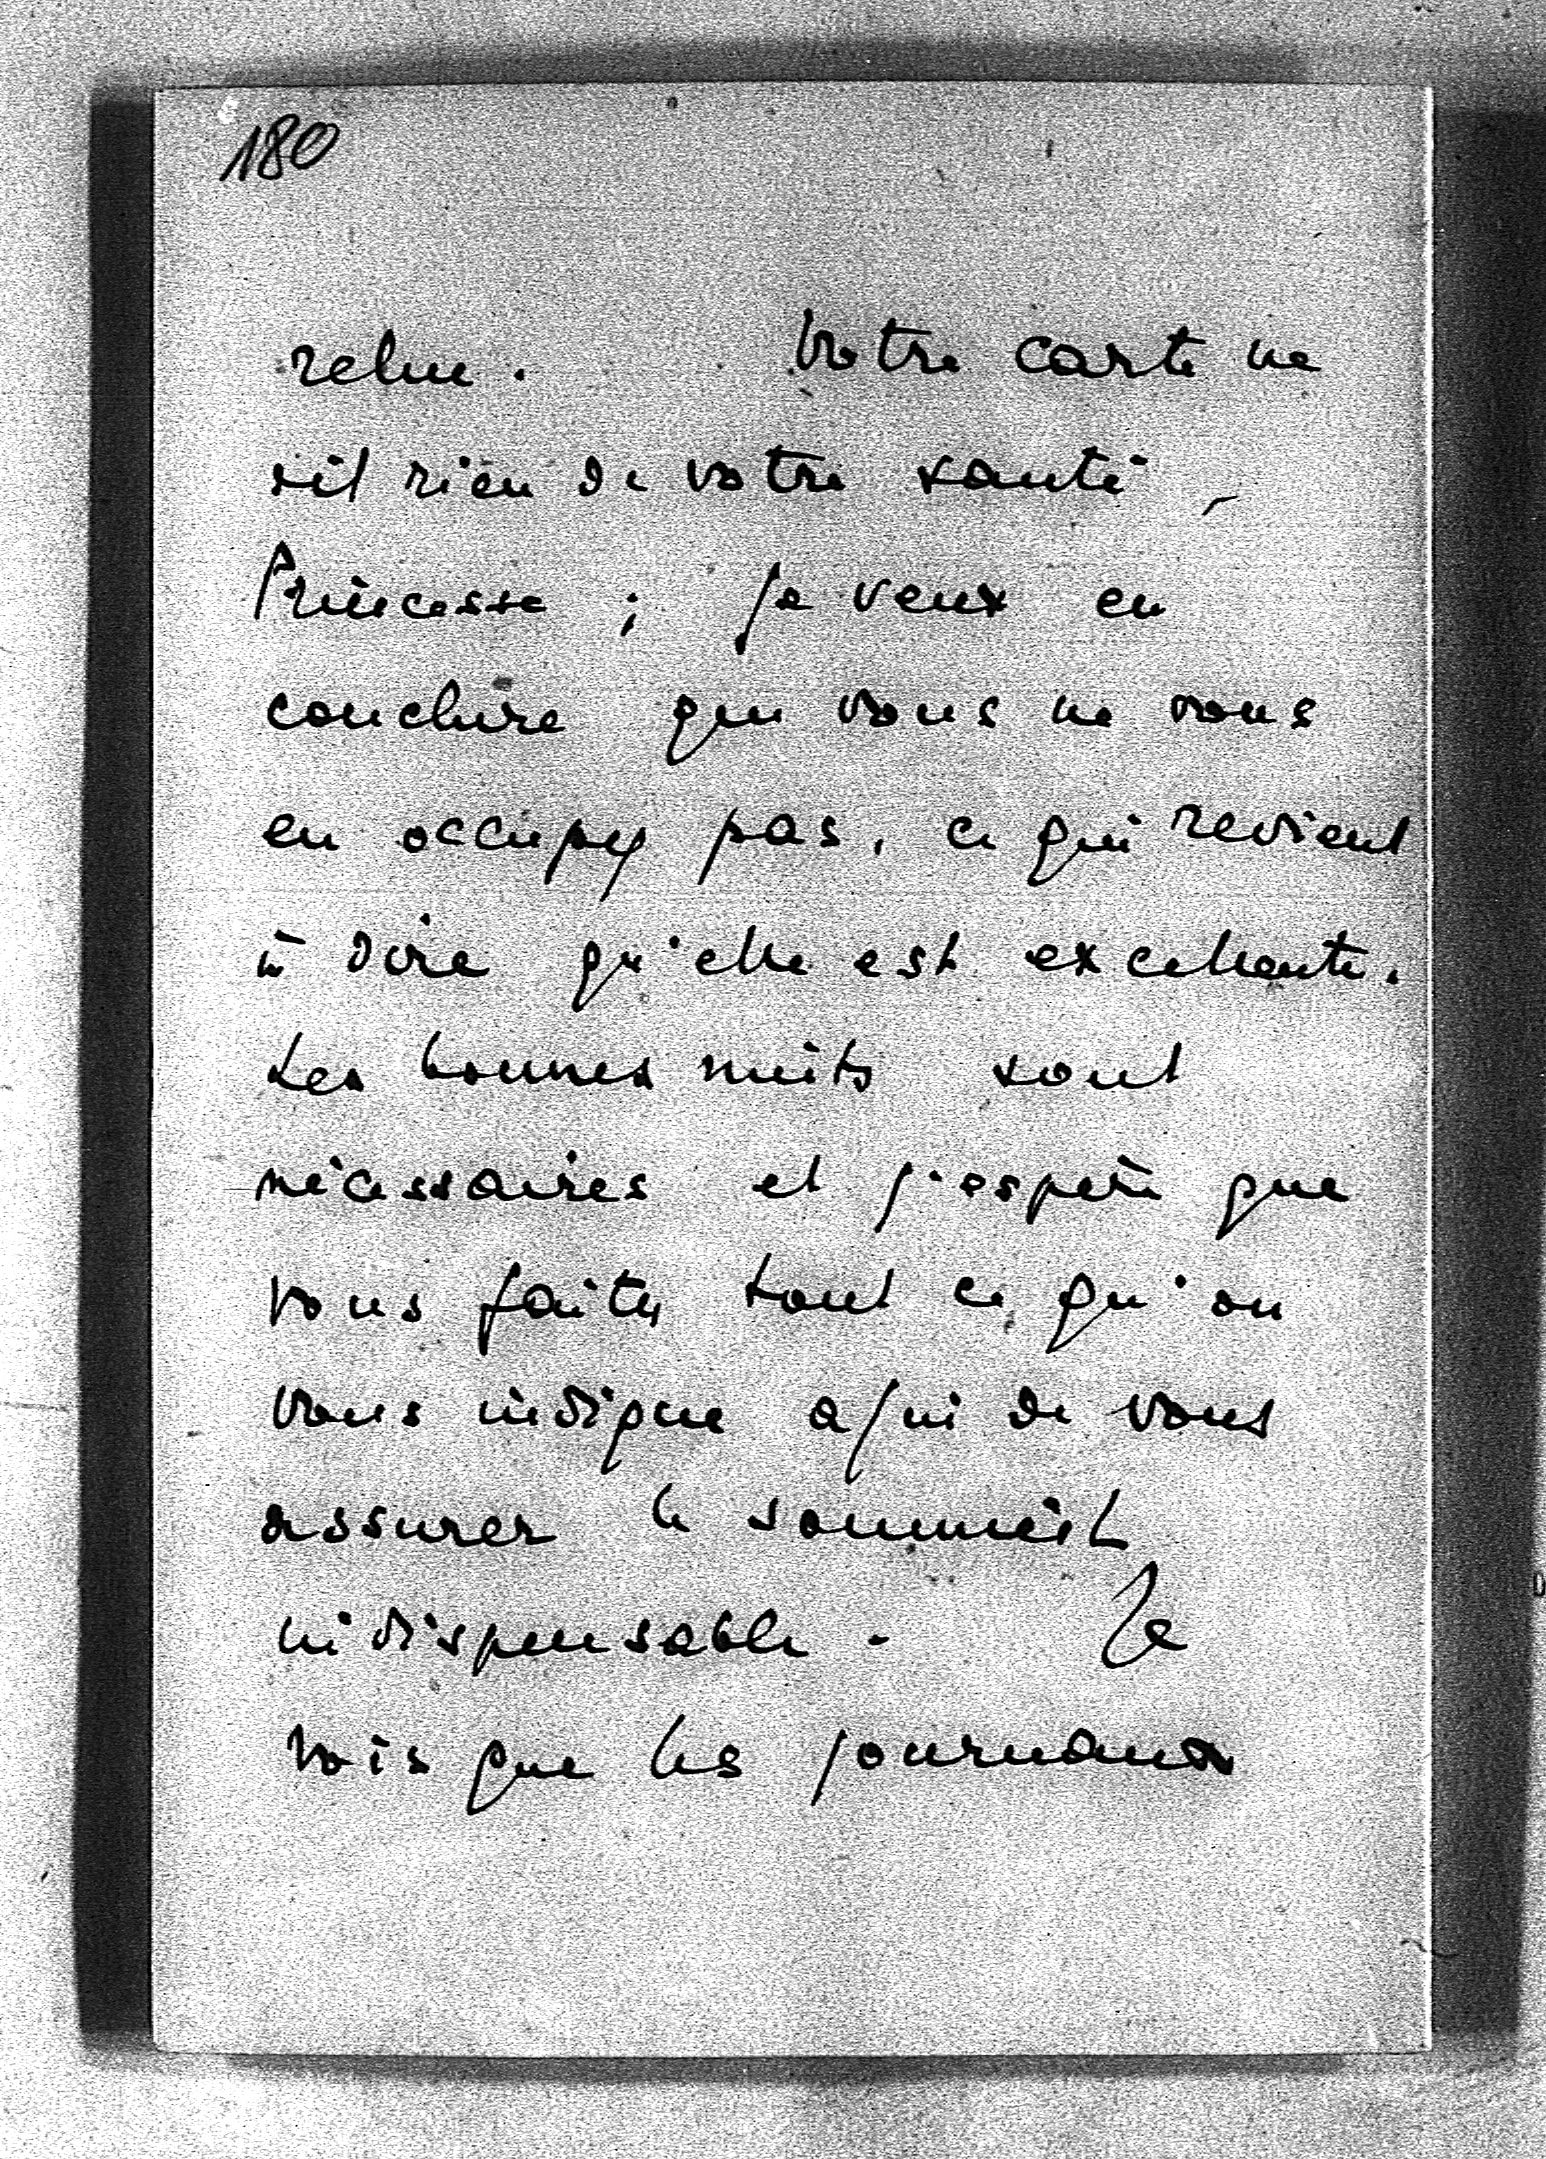 180
relue. Votre carte ne
dit rien de votre santé,
Princesse ; je veux en
conclure que vous ne vous
en occupez pas, ce qui revient
à dire qu'elle est excellente.
Les bonnes nuits sont
nécessaires et j'espère que
vous faites tout ce qu'on
vous indique afin de vous
assurer le sommeil
indispensable. Je
vois que les journaux